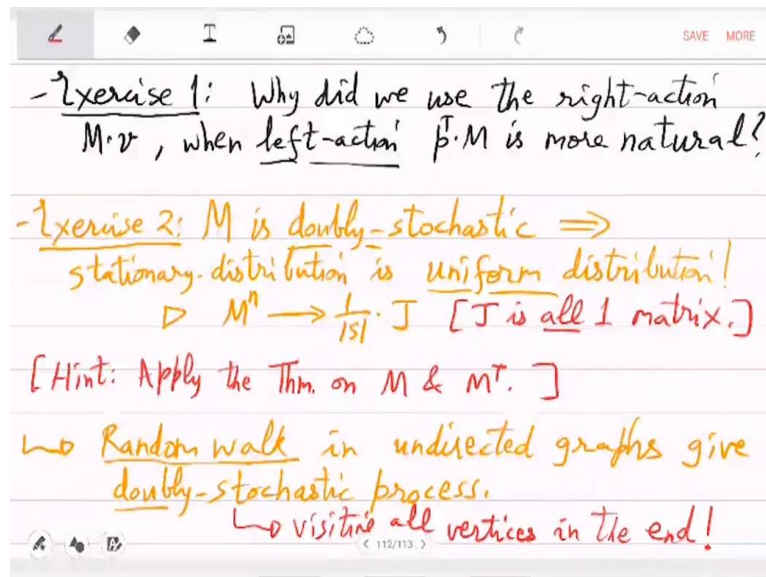 SAVE MORE
- Exercise 1: Why did we use the right-action
M·v, when left-action p^T·M is more natural?
- Exercise 2: M is doubly-stochastic ⟹
stationary-distribution is uniform distribution!
▷ M^n → 1/|S| · J [J is all 1 matrix.]
[Hint: Apply the Thm. on M & M^T. ]
↳ Random walk in undirected graphs give
doubly-stochastic process.
↳ visiting all vertices in the end!
< 112/113 >